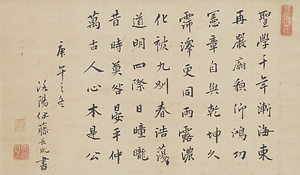 聖學千年漸海東
再嚴廟貌仰鴻功
憲章自與乾坤久
霈澤更同雨露濃
化被九州春浩蕩
道明四際日曈曨
昔時莫答安仲
萬古人心本是公
庚午之冬
洛陽伊藤長胤書